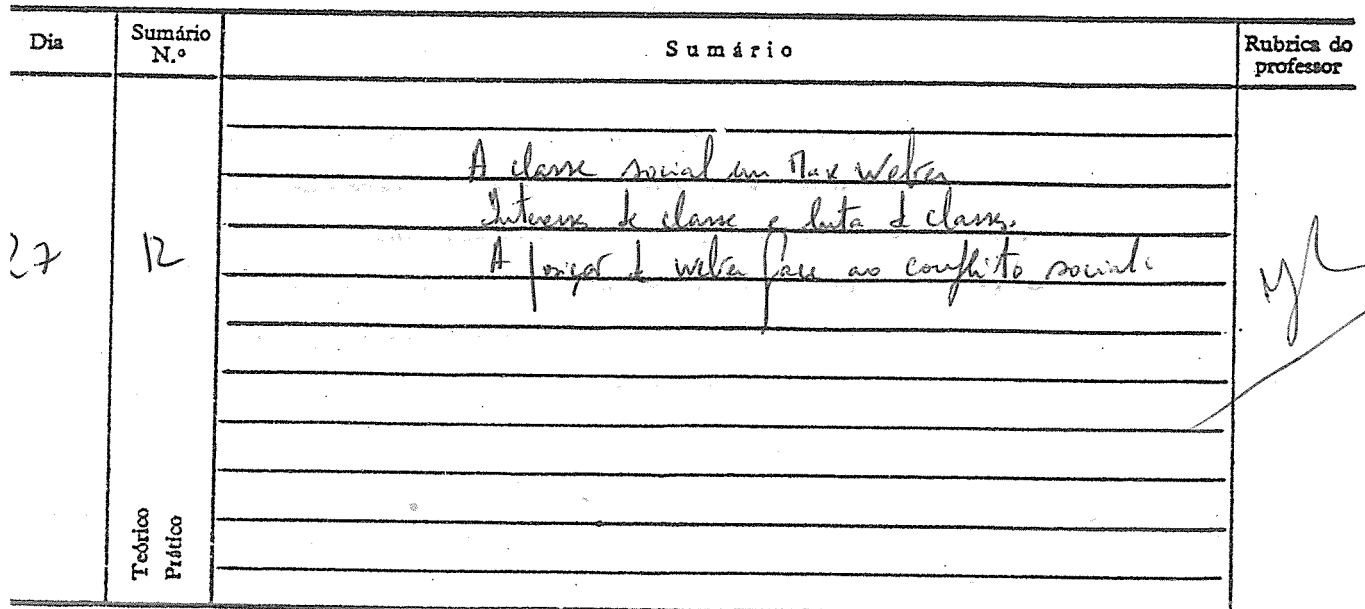 Dia Sumário N.º Sumário Rubrica do professor
27 12
A classe social em Max Weber
Interesses de classe e luta de classes.
A posição de Weber face ao conflito social.
Teórico
Prático